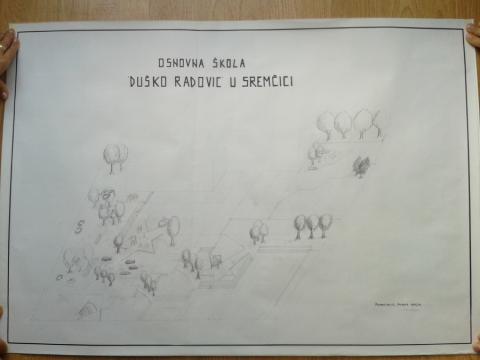 OSNOVNA ŠKOLA
DUŠKO RADOVIĆ U SREMČICI